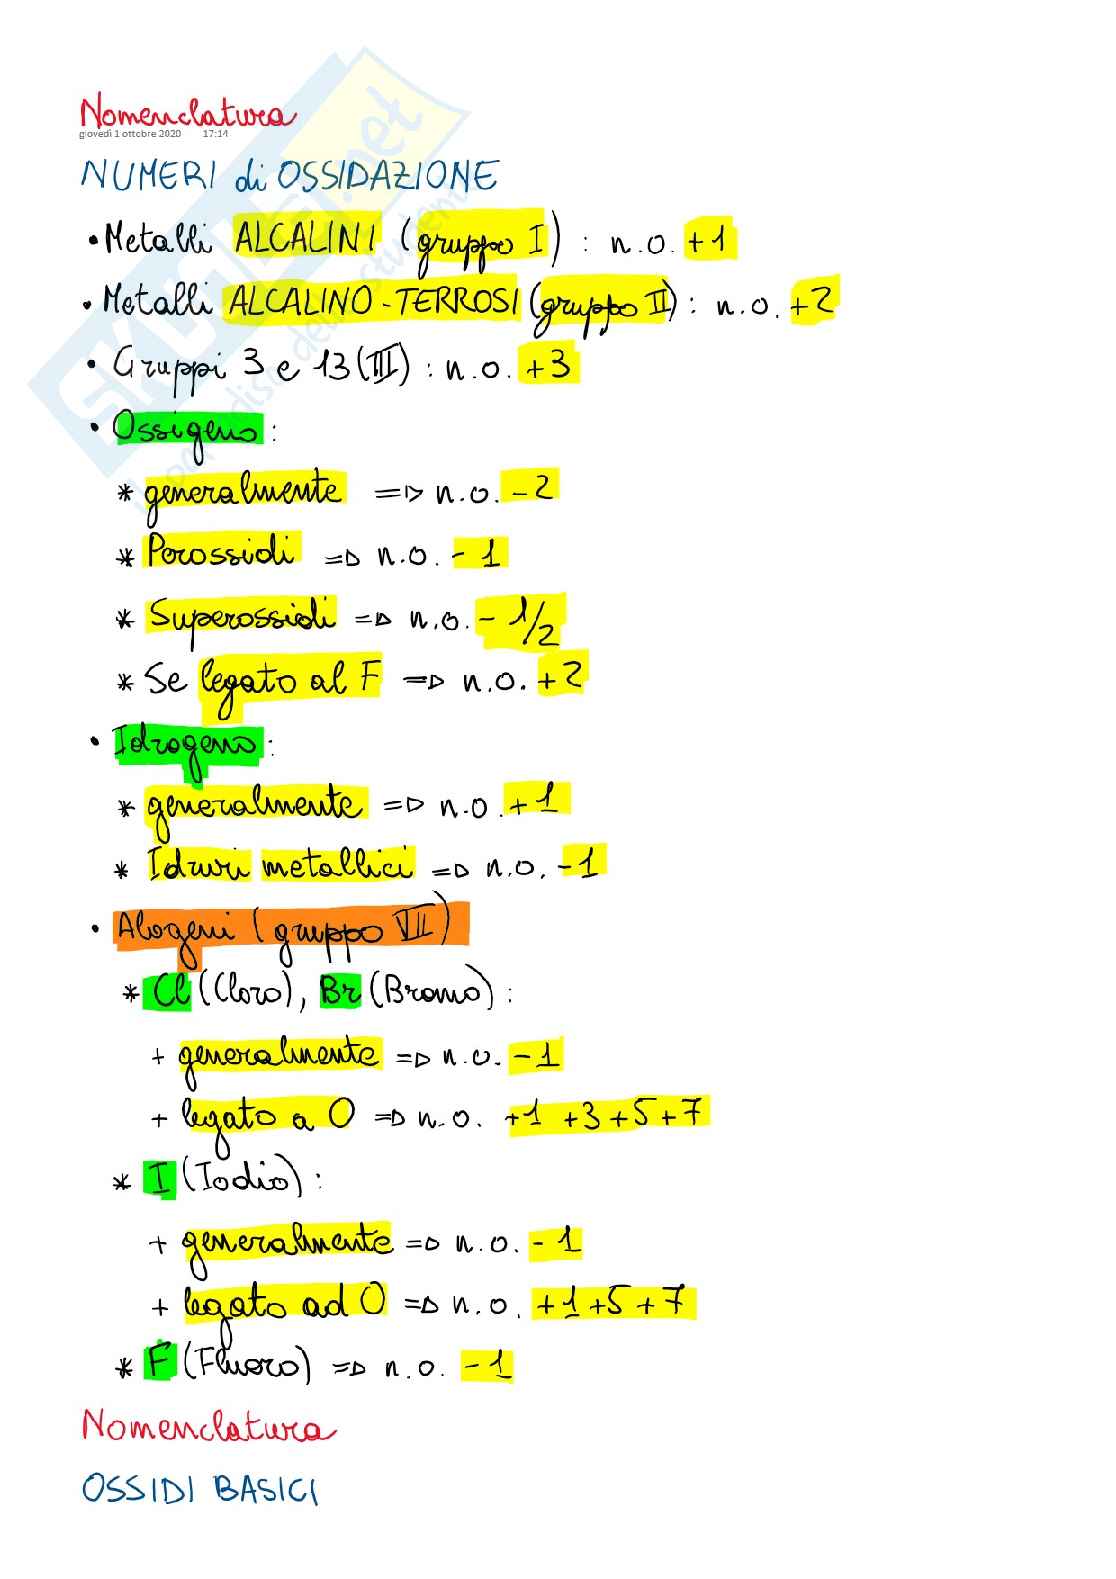 Nomenclatura
giovedì 1 ottobre 2020 17:14
NUMERI di OSSIDAZIONE
• Metalli ALCALINI (gruppo I) : n.o. +1
• Metalli ALCALINO-TERROSI (gruppo II) : n.o. +2
• Gruppi 3 e 13 (III) : n.o. +3
• Ossigeno :
* generalmente => n.o. -2
* Perossidi => n.o. -1
* Superossidi => n.o. -1/2
* Se legato al F => n.o. +2
• Idrogeno :
* generalmente => n.o. +1
* Idruri metallici => n.o. -1
• Alogeni (gruppo VII)
* Cl (Cloro), Br (Bromo) :
+ generalmente => n.o. -1
+ legato a O => n.o. +1 +3 +5 +7
* I (Iodio) :
+ generalmente => n.o. -1
+ legato ad O => n.o. +1 +5 +7
* F (Fluoro) => n.o. -1
Nomenclatura
OSSIDI BASICI
SKUOLA.net